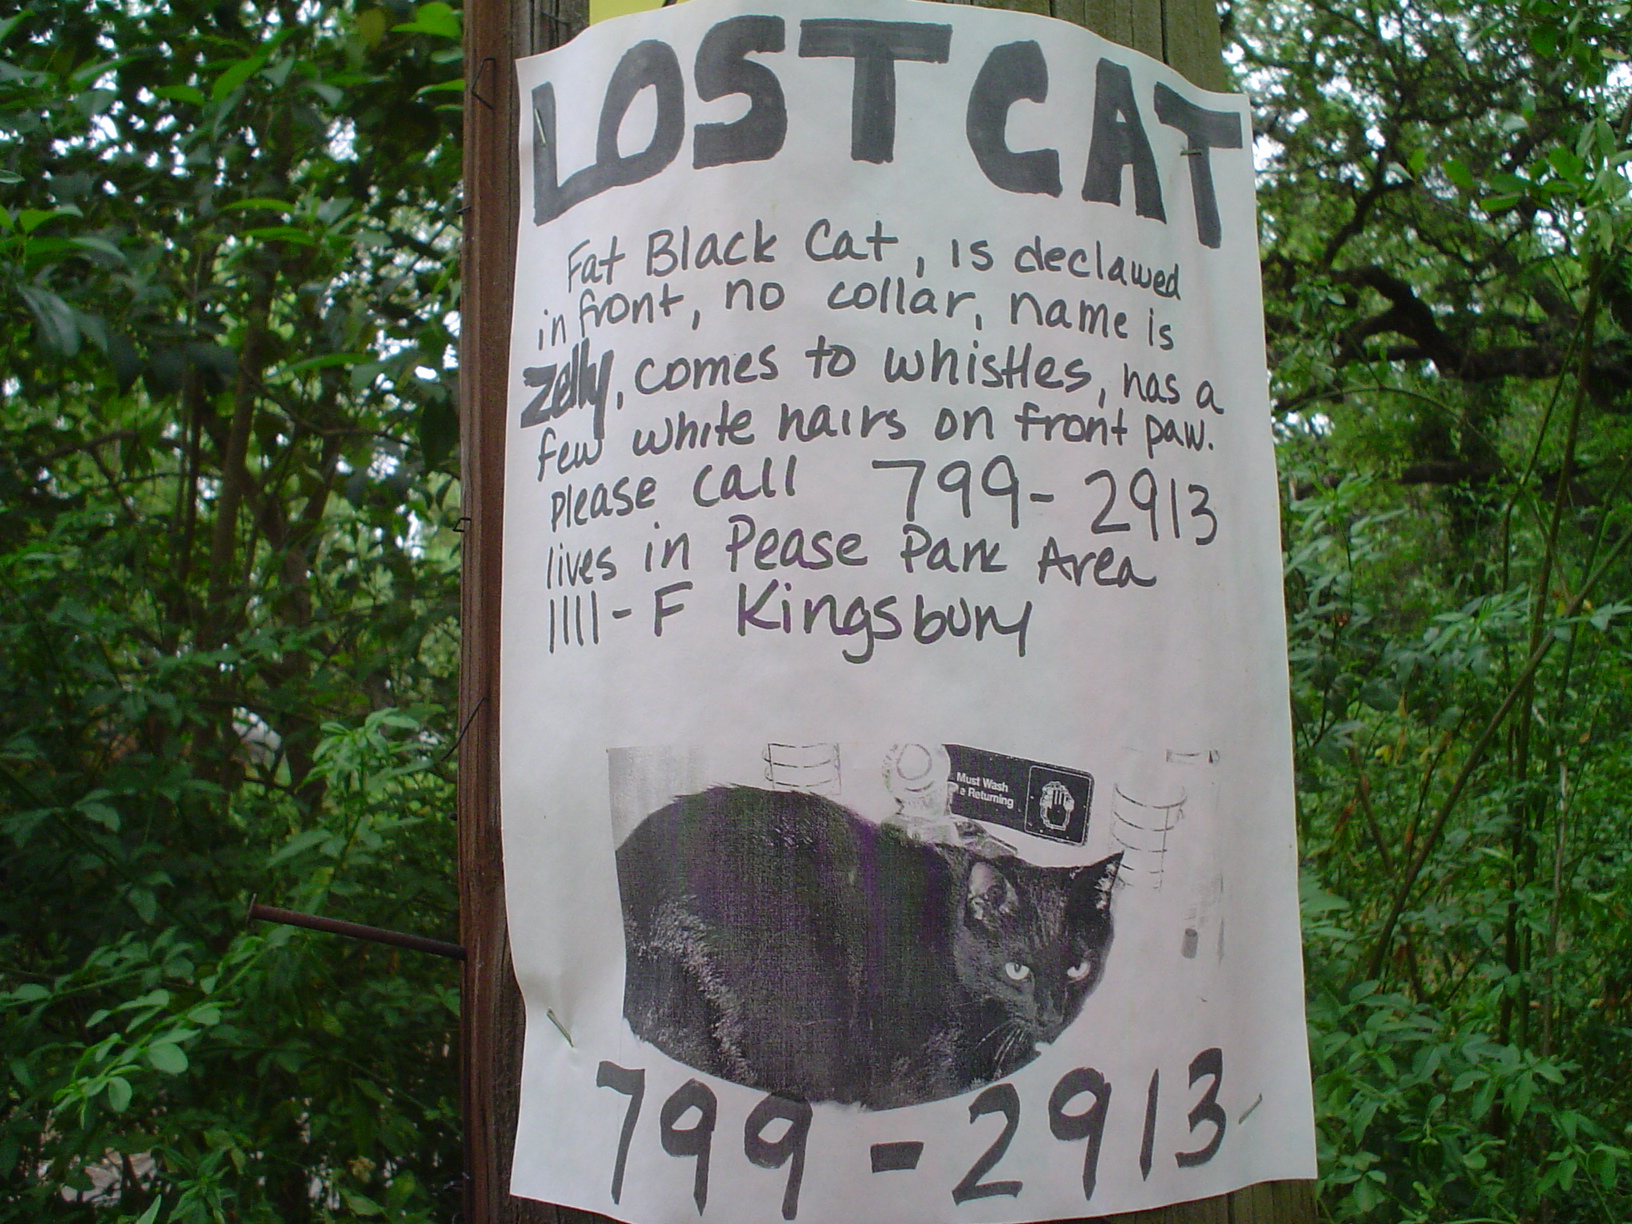 LOST CAT
Fat Black Cat, is declawed
in front, no collar, name is
Zelly, comes to whistles, has a
few white hairs on front paw.
please call 799-2913
lives in Pease Park Area
1111-F Kingsbury
Must Wash
Returning
799-2913